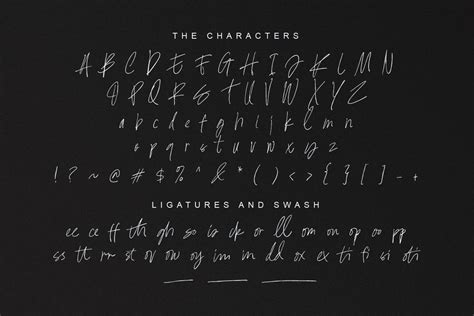 THE CHARACTERS
A B C D E F G H I J K L M N
O P Q R S T U V W X Y Z
a b c d e f g h i j k l m n
o p q r s t u v w x y z
! ? ~ @ # $ % ^ & * ( ) < > { } [ ] - +
LIGATURES AND SWASH
ee cc ff th gh so is ck or ll om on op oo pp
ss tt rm st ov oy im in dd ox ex ti fi si oti